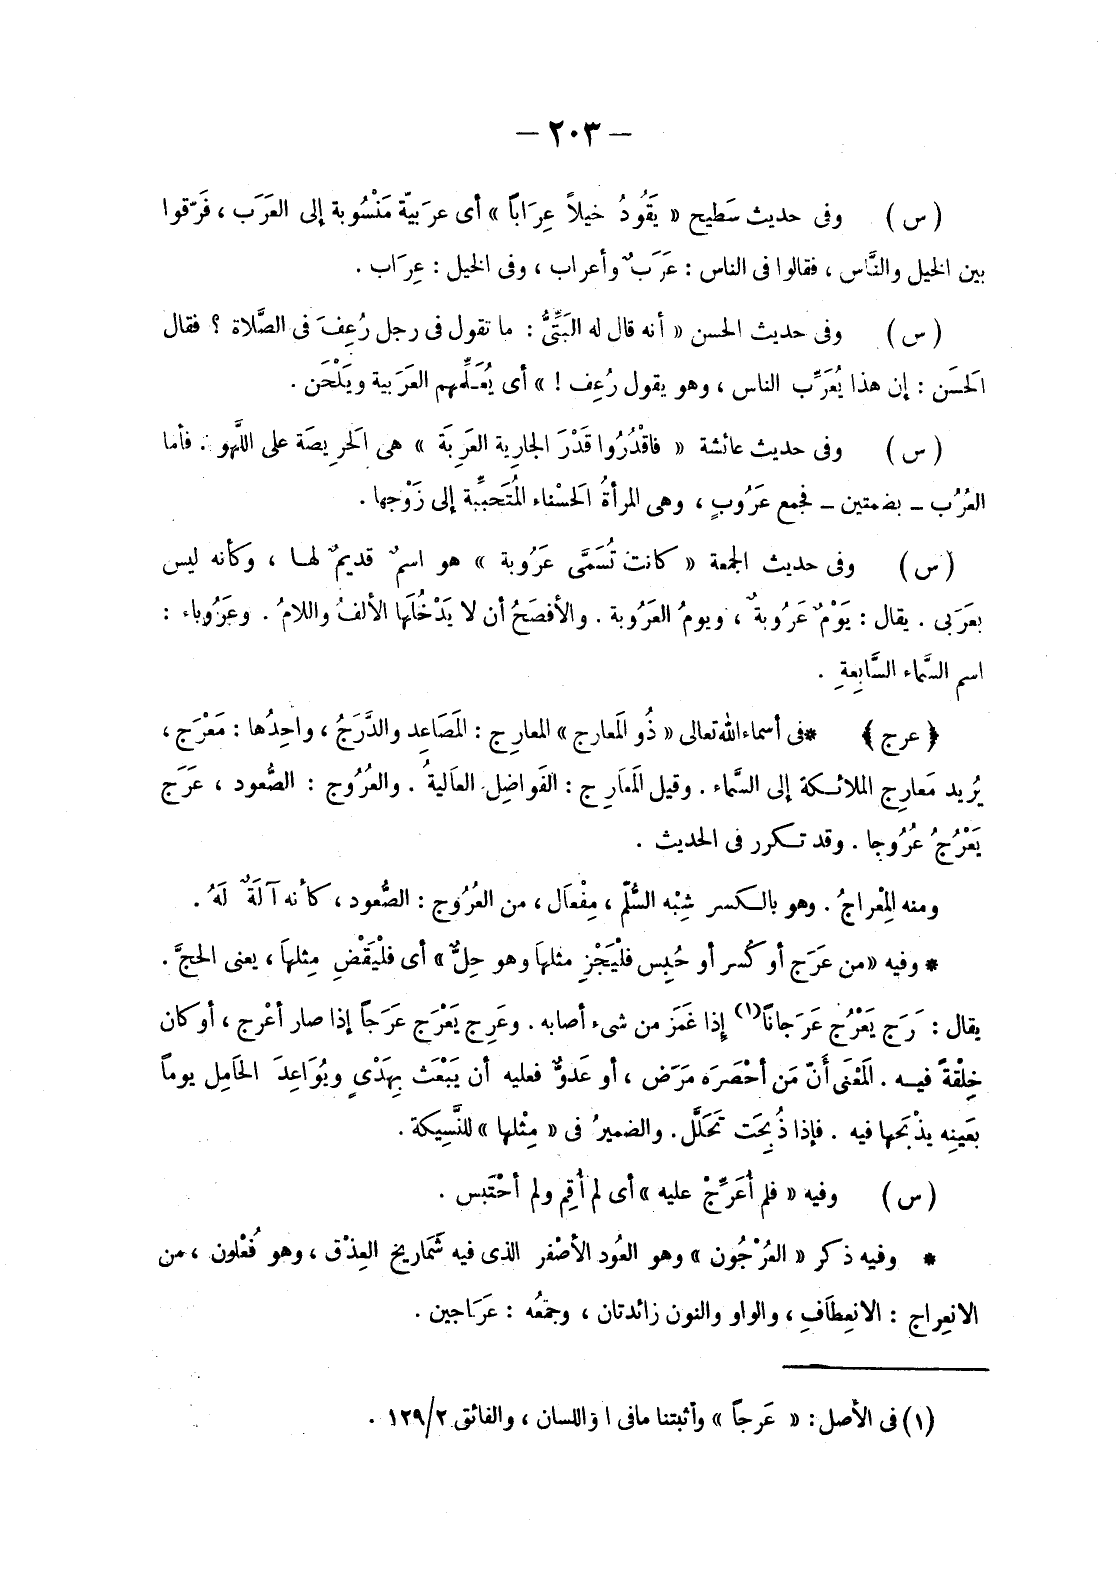 — ٢٠٣ —
( س ) وفى حديث سَطيح « يَقُودُ خيلاً عِرَاباً » أى عربيّة مَنْسُوبة إلى العَرَب ، فَرّقوا
بين الخيل والنَّاس ، فقالوا فى الناس : عَرَبٌ وأعراب ، وفى الخيل : عِرَاب .
( س ) وفى حديث الحسن « أنه قال له البَتِّىُّ : ما تقول فى رجل رُعِفَ فى الصَّلاة ؟ فقال
الَحسَن : إن هذا يُعَرِّب الناس ، وهو يقول رُعِف ! » أى يُعَلِّمهم العَرَبية ويَلْحَن .
( س ) وفى حديث عائشة « فاقْدُرُوا قَدْرَ الجارية العَرِبَة » هى الَحرِيصَة على اللَّهو . فأما
العُرُب ــ بضمتين ــ فجمع عَرُوبٍ ، وهى المرأةُ الَحسْناء المُتَحبِّبة إلى زَوْجها .
( س ) وفى حديث الجمعة « كانت تُسَمَّى عَرُوبة » هو اسمٌ قديمٌ لهـا ، وكأنه ليس
بعَرَبى . يقال : يَوْمٌ عَرُوبةٌ ، ويومُ العَرُوبة . والأفصَحُ أن لا يَدْخُلَها الألفُ واللامُ . وعَرُوباء :
اسم السَّماء السَّابِعةِ .
﴿ عرج ﴾ *فى أسماء الله تعالى « ذُو المَعارج » المعارِج : المَصَاعِد والدَّرَجُ ، واحِدُها : مَعْرَج ،
يُريد مَعارِج الملائـكة إلى السَّماء . وقيل المَعَارِج : الفَواضِل العاليةُ . والعُرُوج : الصُّعود ، عَرَج
يَعْرُجُ عُرُوجا . وقد تـكرر فى الحديث .
ومنه المِعْراجُ . وهو بالـكسر شِبْه السُّلّم ، مِفْعَال ، من العُرُوج : الصُّعود ، كأنه آلَةٌ لَهُ .
* وفيه «من عَرَج أو كُسر أو حُبِس فلْيَجْزِ مثلها وهو حِلٌّ» أى فلْيَقْضِ مِثلها ، يعنى الحجَّ .
يقال : َرَج يَعْرُج عَرَجاناً(١) إذا غَمَز من شىء أصابه . وعَرِج يَعْرَج عَرَجاً إذا صار أعْرج ، أو كان
خِلْقةً فيـه . المَعْنَى أنّ مَن أحْصَرَه مَرَض ، أو عَدوٌّ فعليه أن يَبْعَث بِهَدْىٍ ويُوَاعِدَ الحَامِل يوماً
بعَينِه يذْبَحها فيه . فإذا ذُبِحَت تَحَلَّل. والضميرُ فى « مِثْلها » للنَّسِيكة .
( س ) وفيه « فلم أُعَرِّجْ عليه » أى لم أُقِم ولم أحْتَبِس .
* وفيه ذكر « العُرْجُون » وهو العُود الأصْفر الذى فيه شَمَاريخ العِذْق ، وهو فُعْلون ، من
الانعِراج : الانعِطَافِ ، والواو والنون زائدتان ، وجمْعُه : عَرَاجين .
(١) فى الأصل : « عَرجاً » وأثبتنا مافى ا واللسان ، والفائق ١٢٩/٢ .